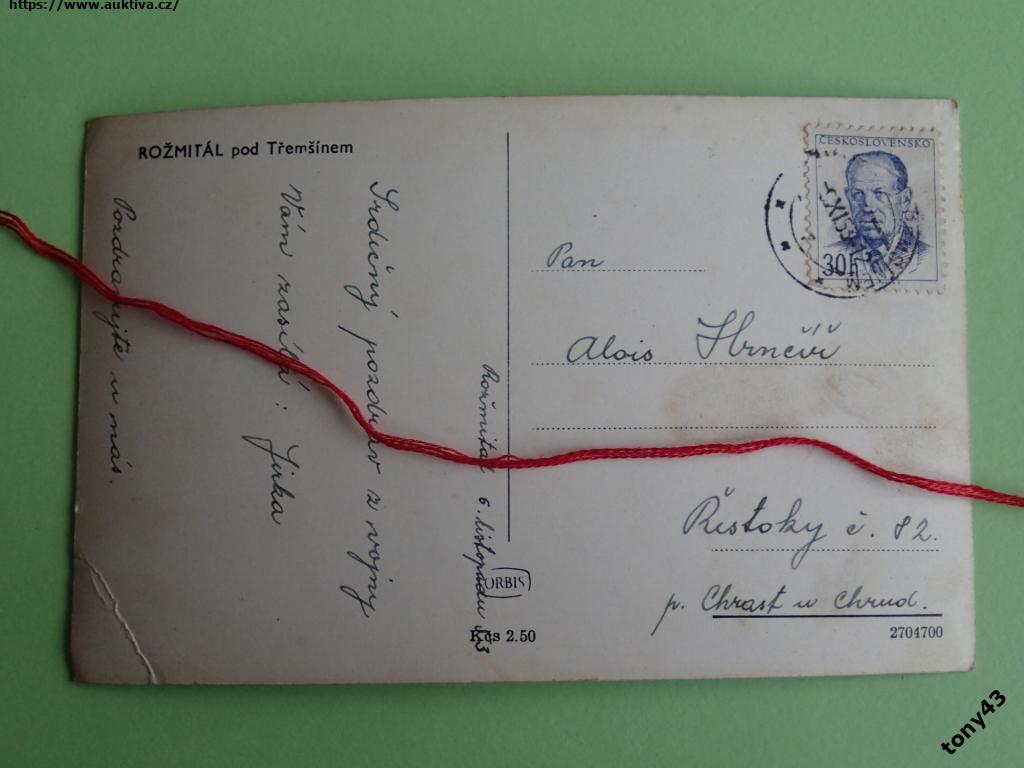 https://www.auktiva.cz/
ROŽMITÁL pod Třemšínem
Rožmitál 6. listopadu 53
Srdečný pozdrav z vojny
Vám zasílá: Jirka
Pozdravujte u nás.
ČESKOSLOVENSKO
30h
Pan
Alois Hrnčíř
Řestoky č. 82.
p. Chrast u Chrud.
ORBIS
Kčs 2.50
2704700
tony43